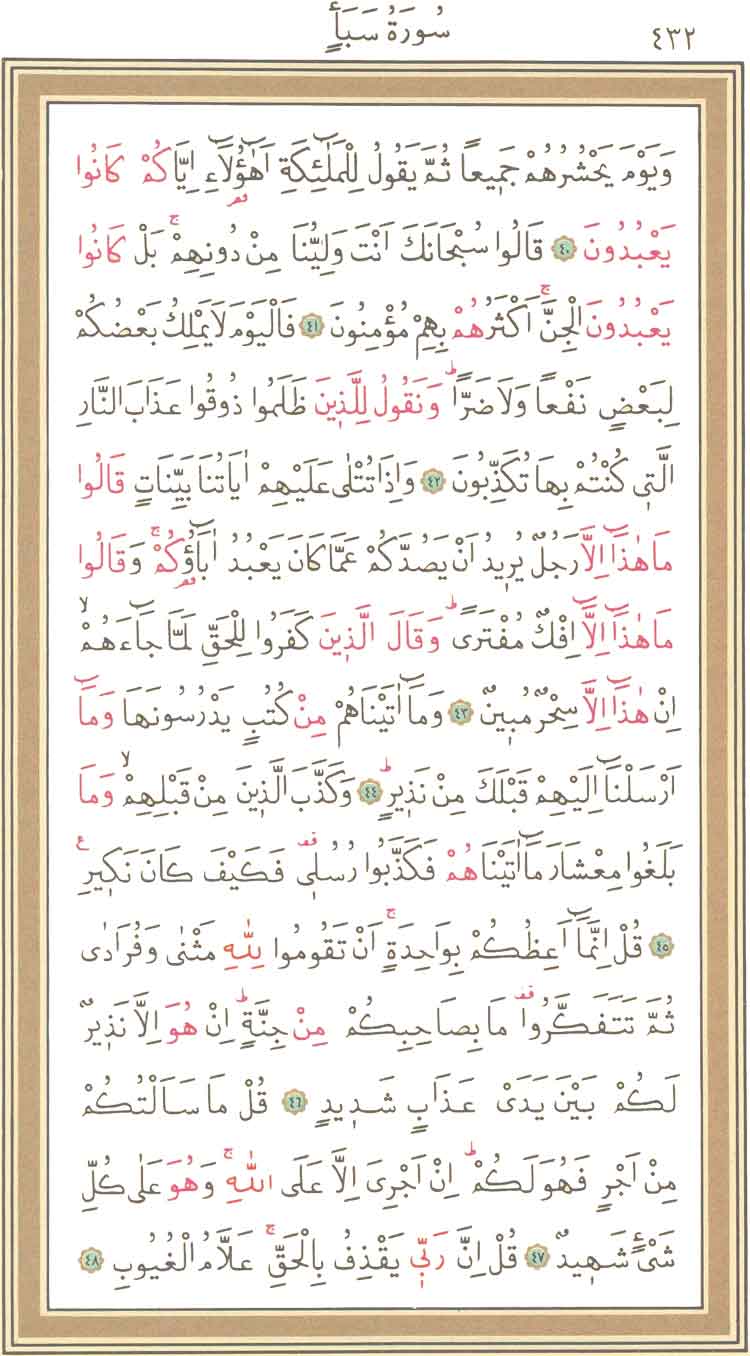 ٤٣٢
سُورَةُ سَبَأٍ
وَيَوْمَ يَحْشُرُهُمْ جَمٖيعاً ثُمَّ يَقُولُ لِلْمَلٰٓئِكَةِ اَهٰٓؤُ۬لَٓاءِ اِيَّاكُمْ كَانُوا
يَعْبُدُونَ ﴿٤٠﴾ قَالُوا سُبْحَانَكَ اَنْتَ وَلِيُّنَا مِنْ دُونِهِمْۚ بَلْ كَانُوا
يَعْبُدُونَ الْجِنَّۚ اَكْثَرُهُمْ بِهِمْ مُؤْمِنُونَ ﴿٤١﴾ فَالْيَوْمَ لَا يَمْلِكُ بَعْضُكُمْ
لِبَعْضٍ نَفْعاً وَلَا ضَراًّؕ وَنَقُولُ لِلَّذٖينَ ظَلَمُوا ذُوقُوا عَذَابَ النَّارِ
الَّتٖي كُنْتُمْ بِهَا تُكَذِّبُونَ ﴿٤٢﴾ وَاِذَا تُتْلٰى عَلَيْهِمْ اٰيَاتُنَا بَيِّنَاتٍ قَالُوا
مَا هٰذَٓا اِلَّا رَجُلٌ يُرٖيدُ اَنْ يَصُدَّكُمْ عَمَّا كَانَ يَعْبُدُ اٰبَٓاؤُ۬كُمْۚ وَقَالُوا
مَا هٰذَٓا اِلَّٓا اِفْكٌ مُفْتَرًىؕ وَقَالَ الَّذٖينَ كَفَرُوا لِلْحَقِّ لَمَّا جَٓاءَهُمْۙ
اِنْ هٰذَٓا اِلَّا سِحْرٌ مُبٖينٌ ﴿٤٣﴾ وَمَٓا اٰتَيْنَاهُمْ مِنْ كُتُبٍ يَدْرُسُونَهَا وَمَٓا
اَرْسَلْنَٓا اِلَيْهِمْ قَبْلَكَ مِنْ نَذٖيرٍؕ ﴿٤٤﴾ وَكَذَّبَ الَّذٖينَ مِنْ قَبْلِهِمْۙ وَمَا
بَلَغُوا مِعْشَارَ مَٓا اٰتَيْنَاهُمْ فَكَذَّبُوا رُسُلٖيࣞ فَكَيْفَ كَانَ نَكٖيرِ ع
﴿٤٥﴾ قُلْ اِنَّمَٓا اَعِظُكُمْ بِوَاحِدَةٍۚ اَنْ تَقُومُوا لِلّٰهِ مَثْنٰى وَفُرَادٰى
ثُمَّ تَتَفَكَّرُواࣞ مَا بِصَاحِبِكُمْ مِنْ جِنَّةٍؕ اِنْ هُوَ اِلَّا نَذٖيرٌ
لَكُمْ بَيْنَ يَدَيْ عَذَابٍ شَدٖيدٍ ﴿٤٦﴾ قُلْ مَا سَاَلْتُكُمْ
مِنْ اَجْرٍ فَهُوَ لَكُمْؕ اِنْ اَجْرِيَ اِلَّا عَلَى اللّٰهِۚ وَهُوَ عَلٰى كُلِّ
شَيْءٍ شَهٖيدٌ ﴿٤٧﴾ قُلْ اِنَّ رَبّٖي يَقْذِفُ بِالْحَقِّۚ عَلَّامُ الْغُيُوبِ ﴿٤٨﴾